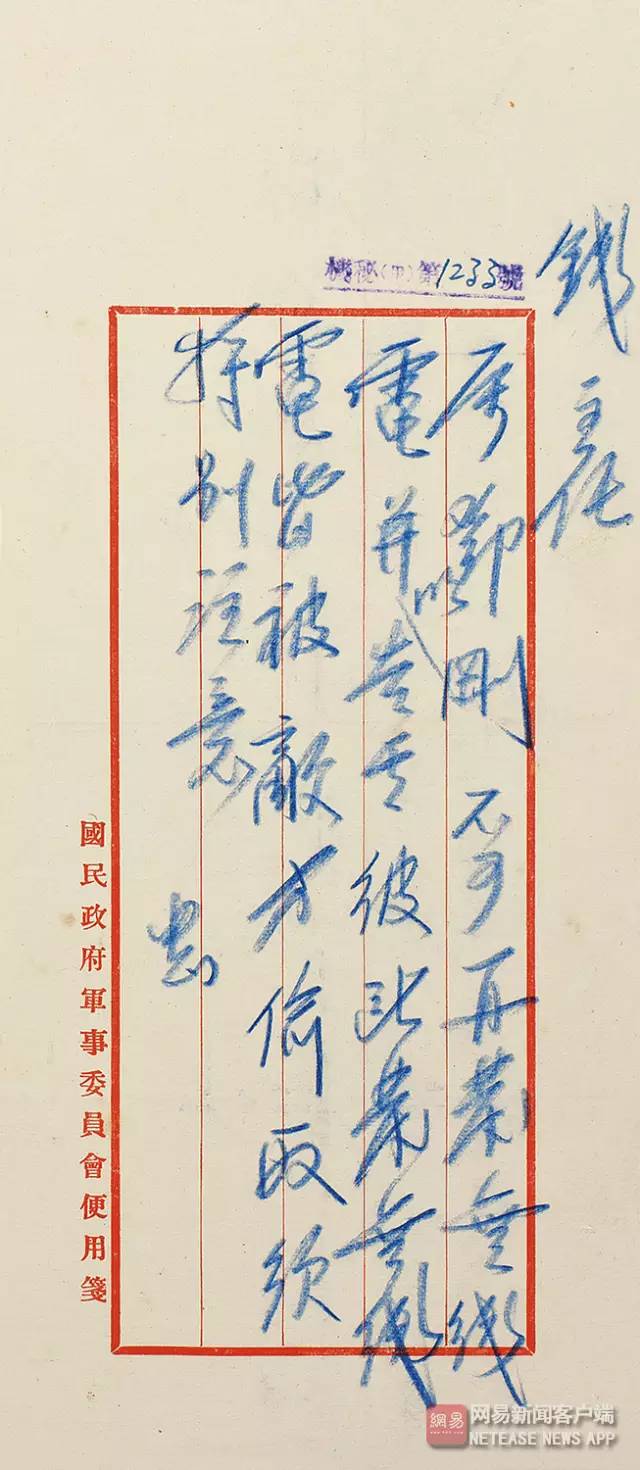 錢主任
機秘(甲)第1233號
剛不可再發無线
電并告彼此發無线
電皆被敵方偷取須
特别注意
中正
國民政府軍事委員會便用箋
網易
网易新闻客户端
NETEASE NEWS APP